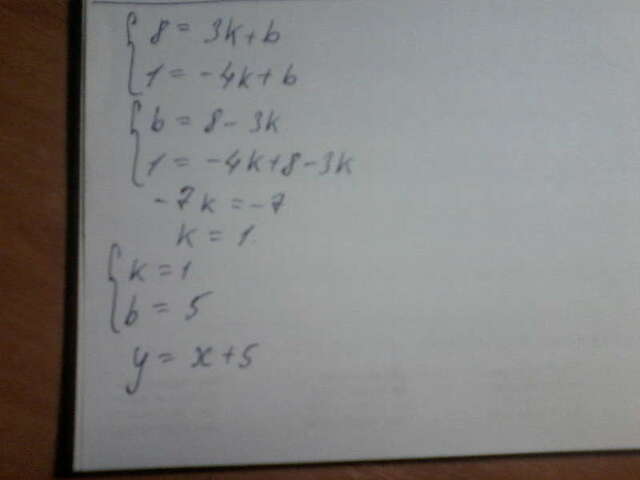 8 = 3k+b
1 = -4k+b
b = 8 - 3k
1 = -4k+8-3k
-7k = -7
k = 1
k = 1
b = 5
y = x+5